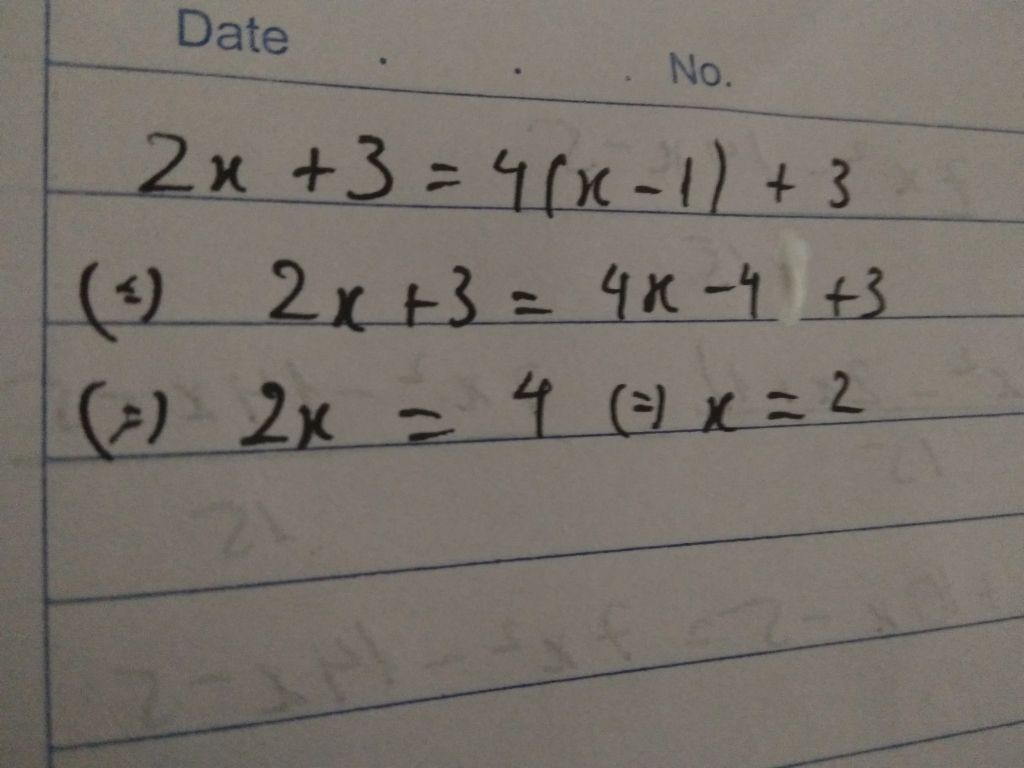 Date . . . No.
2x + 3 = 4(x - 1) + 3
(=) 2x + 3 = 4x - 4 + 3
(=) 2x = 4 (=) x = 2